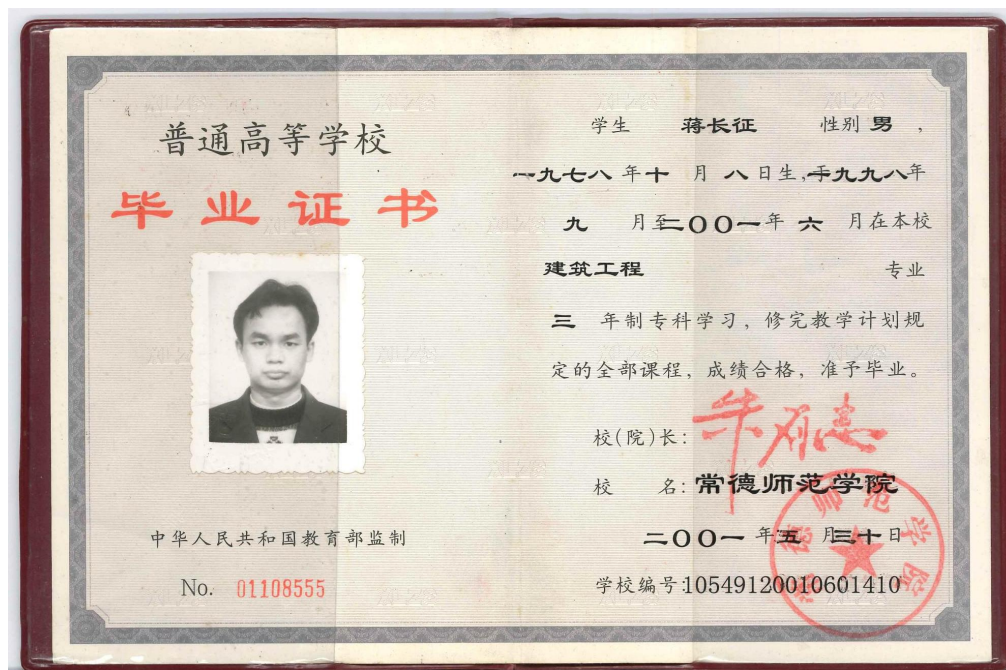 普通高等学校
毕业证书
中华人民共和国教育部监制
No. 01108555
学生 蒋长征 性别 男 ,
一九七八 年 十 月 八 日生,于一九九八年
九 月至二〇〇一年 六 月在本校
建筑工程 专业
三 年制专科学习，修完教学计划规
定的全部课程，成绩合格，准予毕业。
校(院)长:
校 名: 常德师范学院
二〇〇一 年 五 月三十日
学校编号:10549120010601410
常德师范学院